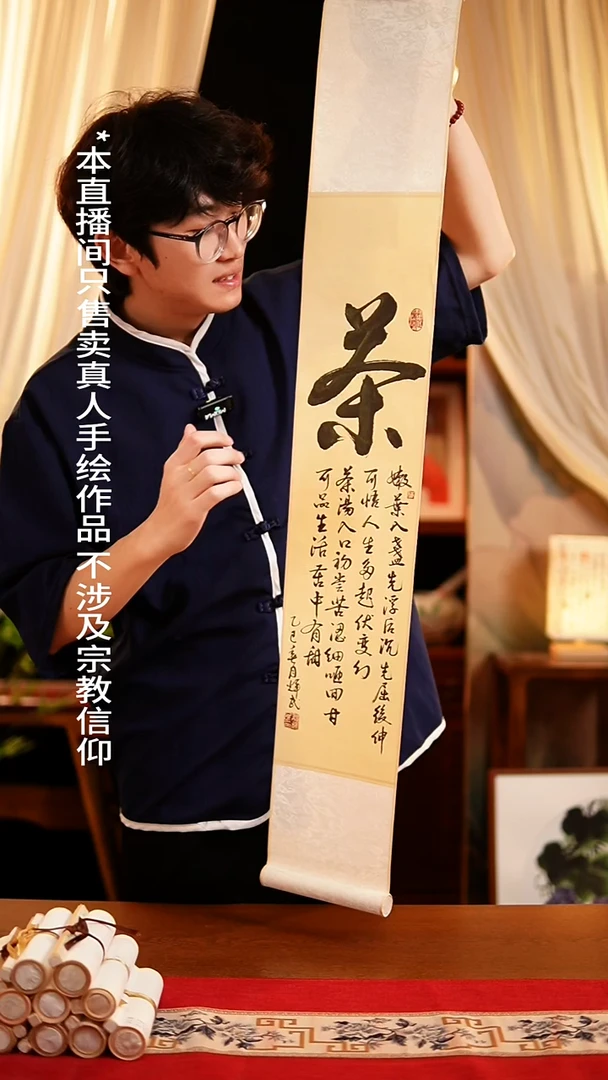 *本直播间只售卖真人手绘作品 不涉及宗教信仰
茶
嫩葉入盞先浮后沉先屈後伸
可悟人生多起伏变幻
茶湯入口初尝苦涩细咂回甘
可品生活苦中有甜
乙巳春月